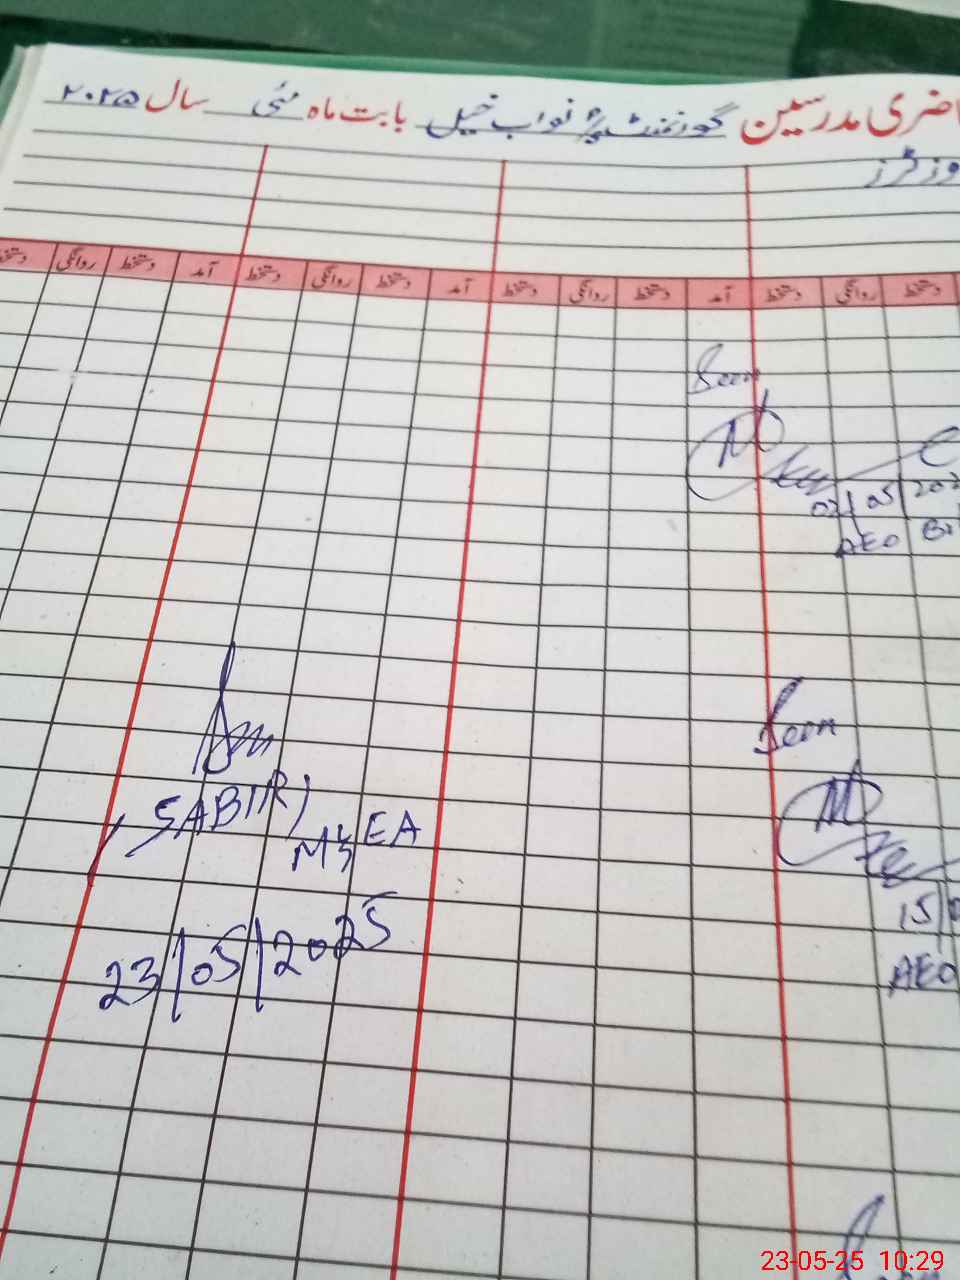 اضری مدرسین گورنمنٹ نواب خیل بابت ماہ مئی سال ۲۰۲۵
وزٹرز
دستخط روانگی دستخط آمد دستخط روانگی دستخط آمد دستخط روانگی دستخط آمد دستخط روانگی دستخط
Seen
02/05/202
AEO
Seen
SABIR
MEA
15/0
AEO
23/05/2025
23-05-25 10:29